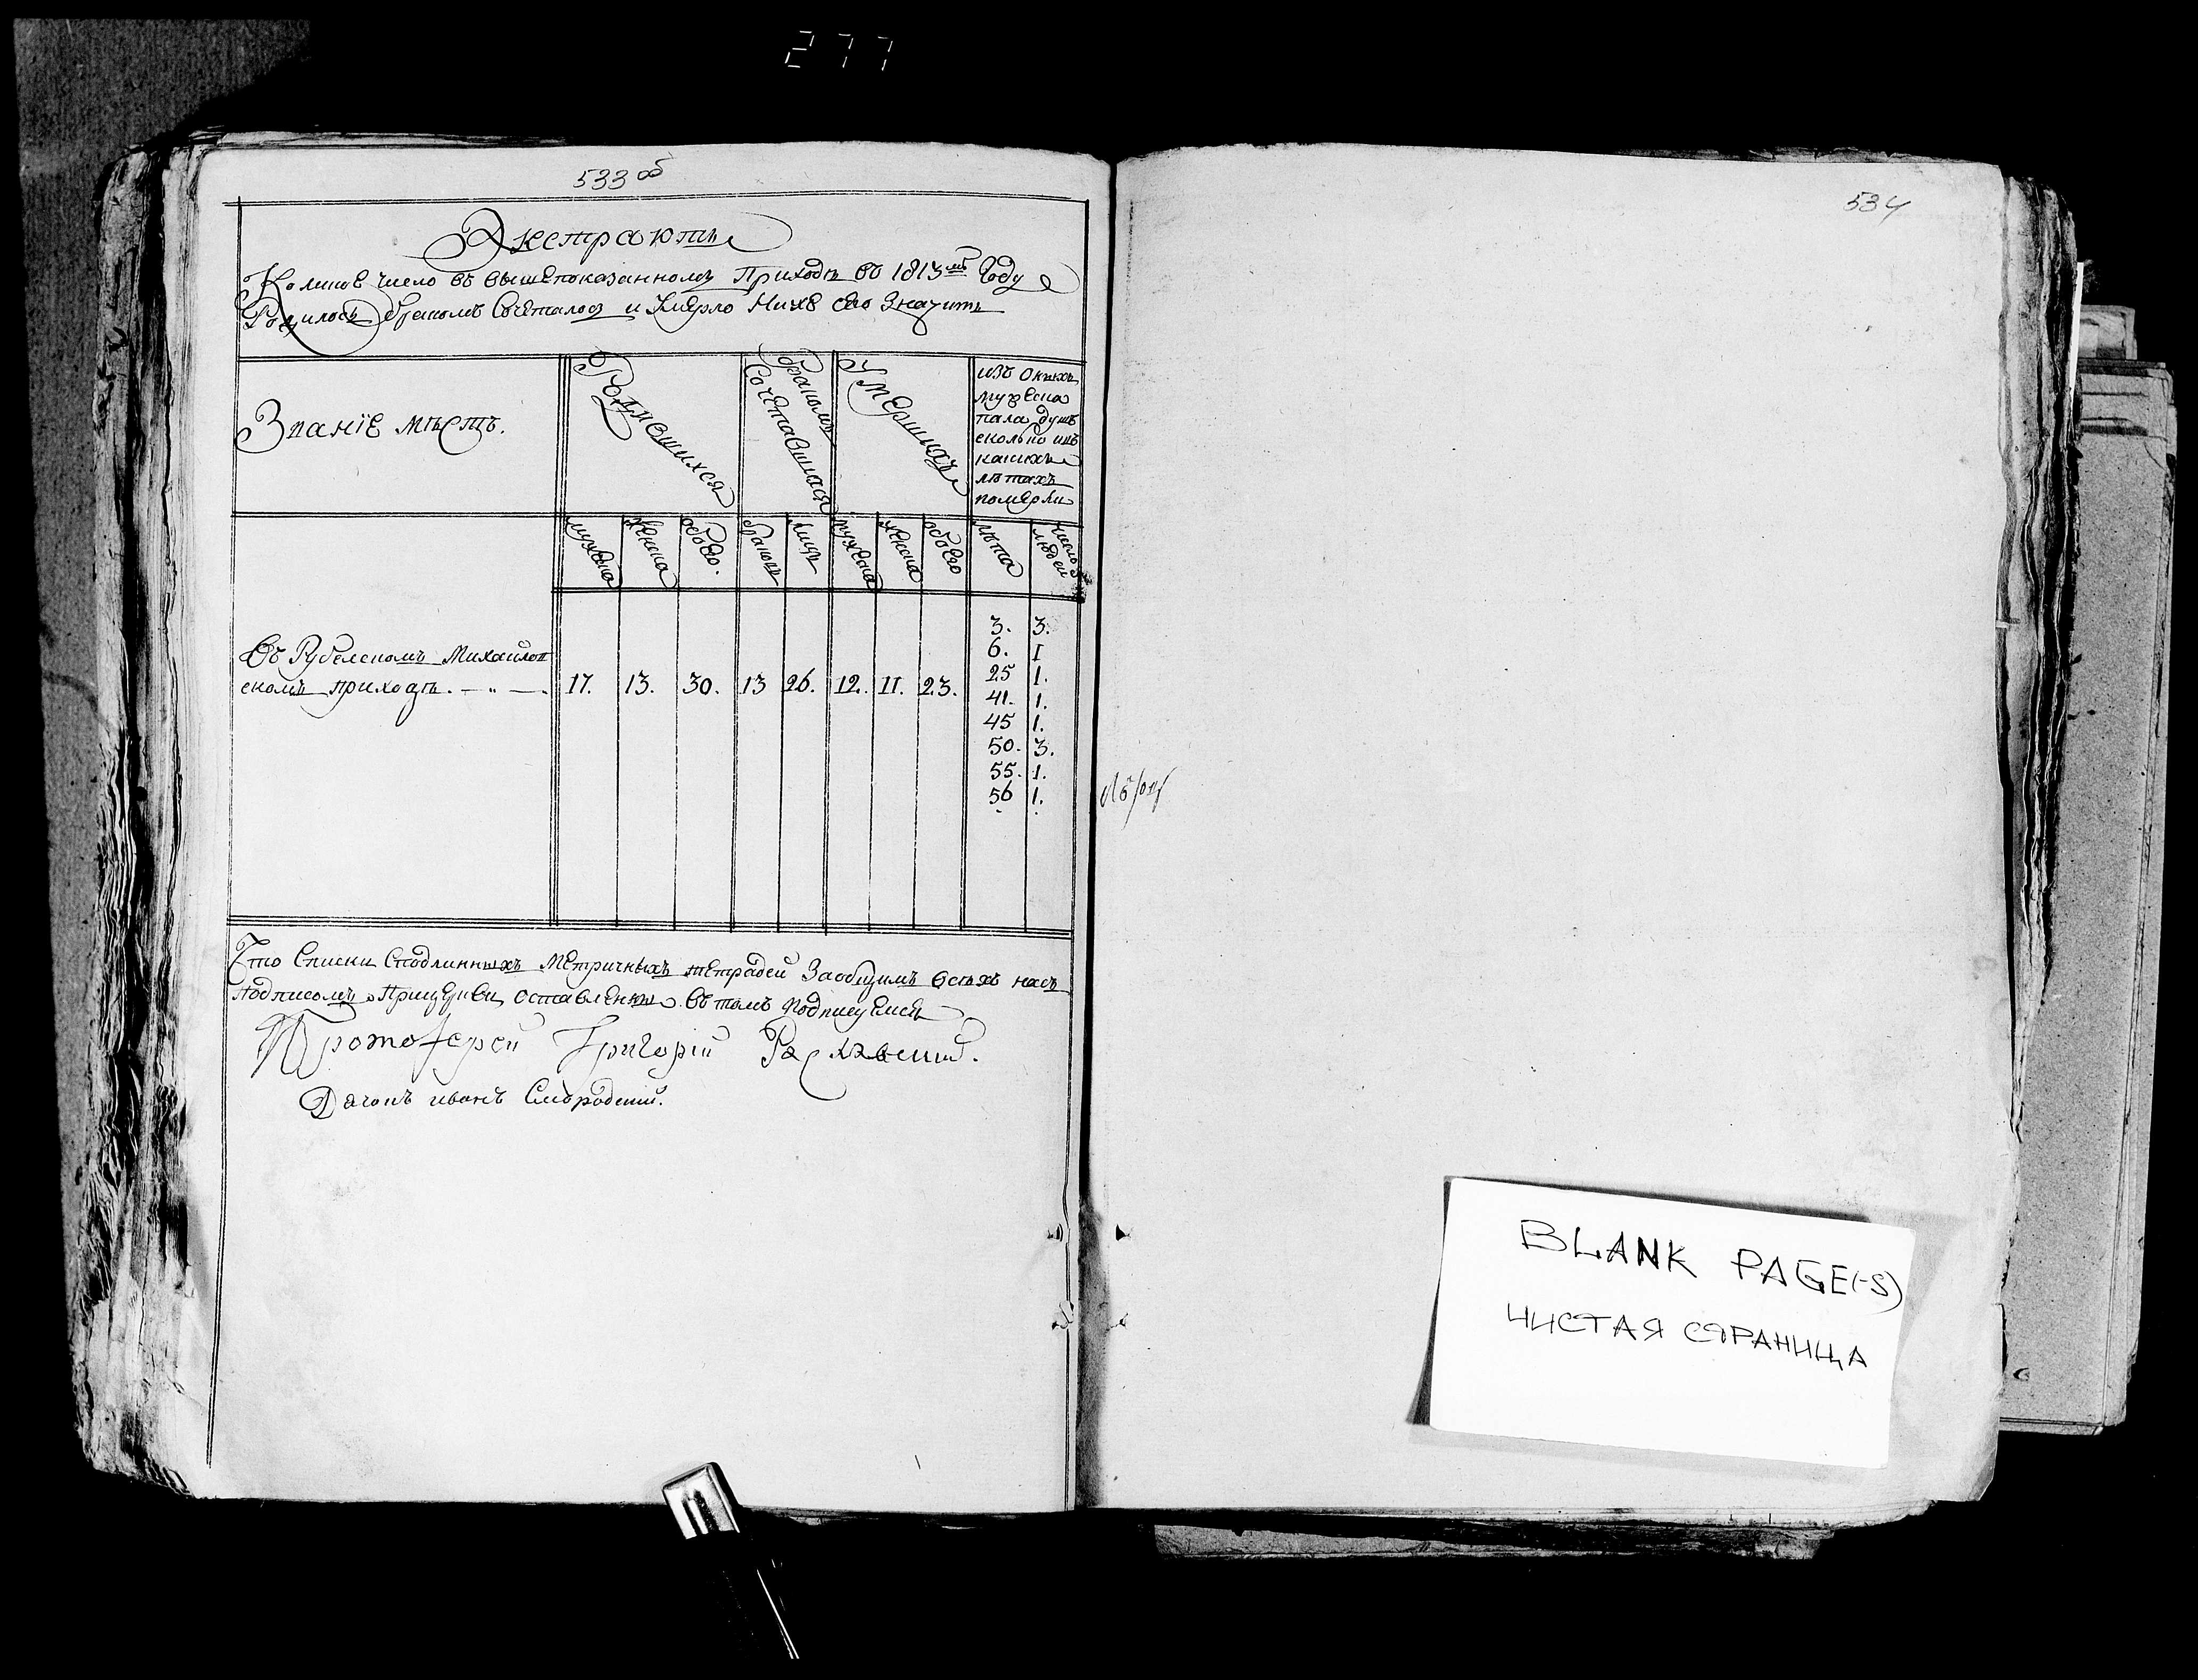 277
533 об
Экстрактъ
Коликое число въ вышепоказанномъ Приходѣ въ 1813мъ Году
Родилось бракомъ Сочеталось и Умерло Ниже сего Значитъ
Знанїе мѣстъ.
Родившихся
бракомъ Сочетавшихся
Умершихъ
изъ оныхъ
мужеска
пола душъ
сколько и въ
какихъ
лѣтахъ
померли
мужеска
женска
обоего.
браковъ
лицъ
мужеска
женска
обоего
лѣта
число людей
Въ Рубелскомъ Михайлов
скомъ приходѣ. - „ -
17. 13. 30. 13 26. 12. 11. 23.
3. 3.
6. 1
25 1.
41. 1.
45 1.
50. 3.
55. 1.
56 1.
Что Списки Сподлинныхъ Метричныхъ тетрадей Заобщимъ всѣхъ насъ
подписомъ Прицеркви оставлены въ томъ подписуемся
Протоіерей Григорій
Дячокъ иванъ Смородскій.
534
BLANK PAGE(-S)
ЧИСТАЯ СТРАНИЦА